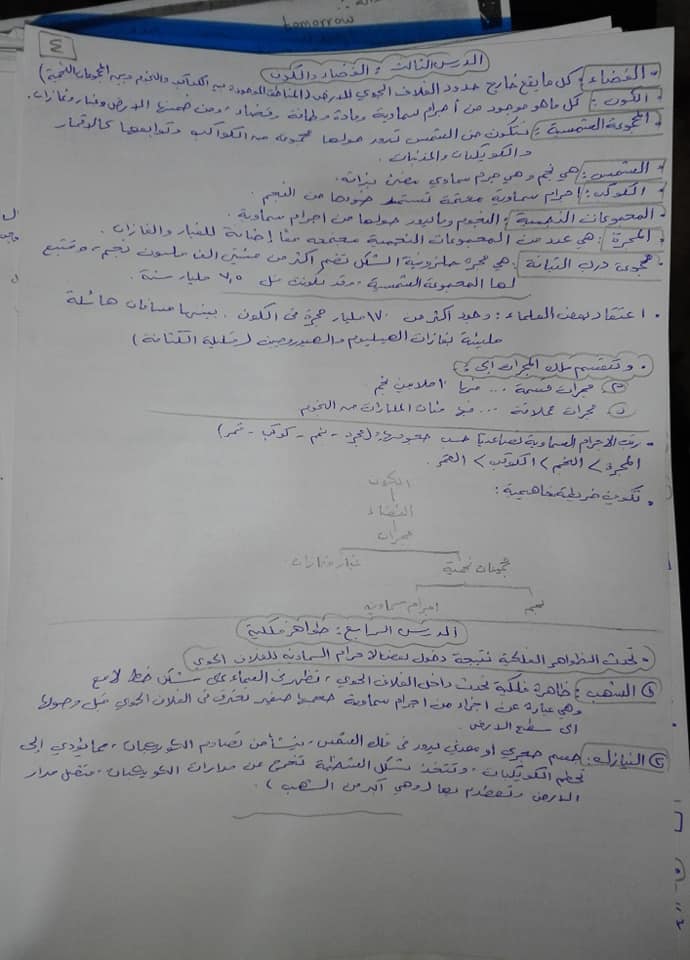 tomorrow
٤
الدرس الثالث : الفضاء والكون
• الفضاء : كل ما يقع خارج حدود الغلاف الجوي للارض (المناطق الموجودة بين الكواكب والنجوم وبين المجموعات النجمية)
• الكون : كل ما هو موجود من أجرام سماوية ومادة وطاقة وفضاء ، ومن ضمنها الارض وغبار وغازات .
• المجموعة الشمسية : تتكون من الشمس تدور حولها مجموعه من الكواكب وتوابعها كالاقمار
والكويكبات والمذنبات .
• الشمس : هي نجم وهي جرم سماوي مضئ بذاته .
• الكوكب : اجرام سماوية معتمة تستمد ضوءها من النجم .
• المجموعات النجمية : النجوم وما يدور حولها من اجرام سماوية .
• المجرة : هي عدد من المجموعات النجمية مجتمعه معًا إضافة للغبار والغازات .
• مجرة درب التبانة : هي مجرة حلزونية الشكل تضم اكثر من مئتين الف مليون نجم ، وتتبع
لها المجموعة الشمسية ، وقد تكونت قبل ٧,٥ مليار سنة .
• اعتقاد بعض العلماء : وجود اكثر من مليار مجرة في الكون ، بينها مسافات هائلة
مليئة بغازات الهيليوم والهيدروجين (قليلة الكثافة)
• وتنقسم تلك المجرات الى :
مجرات قزمة ... فيها ١٠ ملايين نجم
مجرات عملاقة ... فيها مئات المليارات من النجوم
• رتب الاجرام السماوية تصاعديا حسب حجومها : (مجرة - نجم - كوكب - قمر)
المجرة > النجم > الكوكب > القمر .
• تكوين خريطة مفاهيمية :
الكون
الفضاء
مجرات
مجموعات نجمية غبار وغازات
نجم اجرام سماوية
الدرس الرابع : ظواهر فلكية
• تحدث الظواهر الفلكية نتيجة دخول بعض الاجرام السماوية للغلاف الجوي
① الشهب : ظاهرة فلكية تحدث داخل الغلاف الجوي ، تظهر في السماء على شكل خط لامع
وهي عبارة عن اجزاء من اجرام سماوية حجمها صغير تحترق في الغلاف الجوي قبل وصولها
الى سطح الارض .
② النيازك : جسم صخري أو معدني تدور في فلك الشمس ، ينشأ من تصادم الكويكبات ، مما يؤدي الى
تحطم الكويكبات ، وتتخذ شكل الشظية تخرج عن مدارات الكويكبات ، فتصل مدار
الارض وتصطدم بها (وهي أكبر من الشهب) .